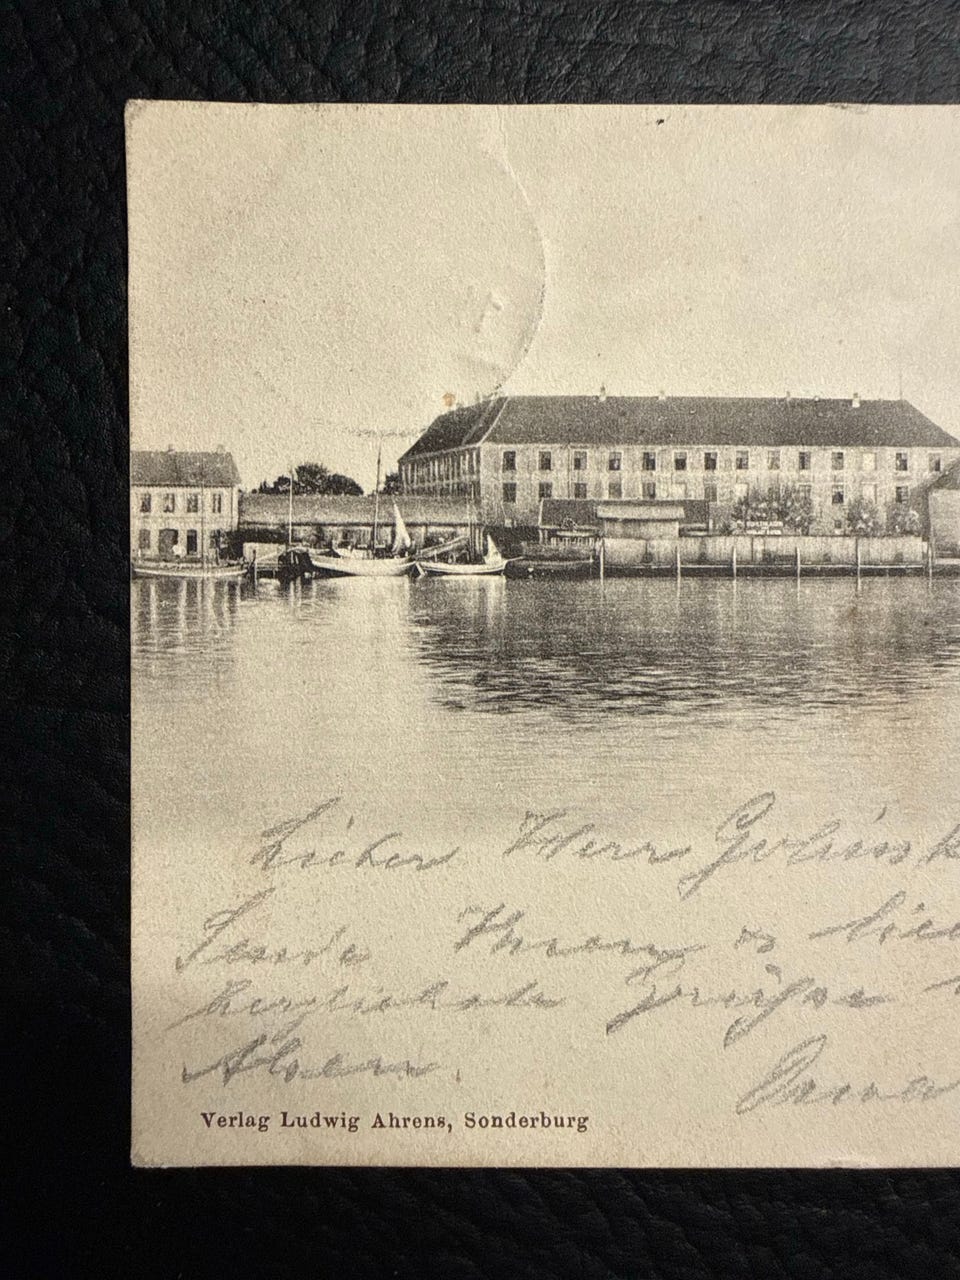 Lieber Herr
Sende Ihnen
herzlichste Grüße
Alsen
Verlag Ludwig Ahrens, Sonderburg